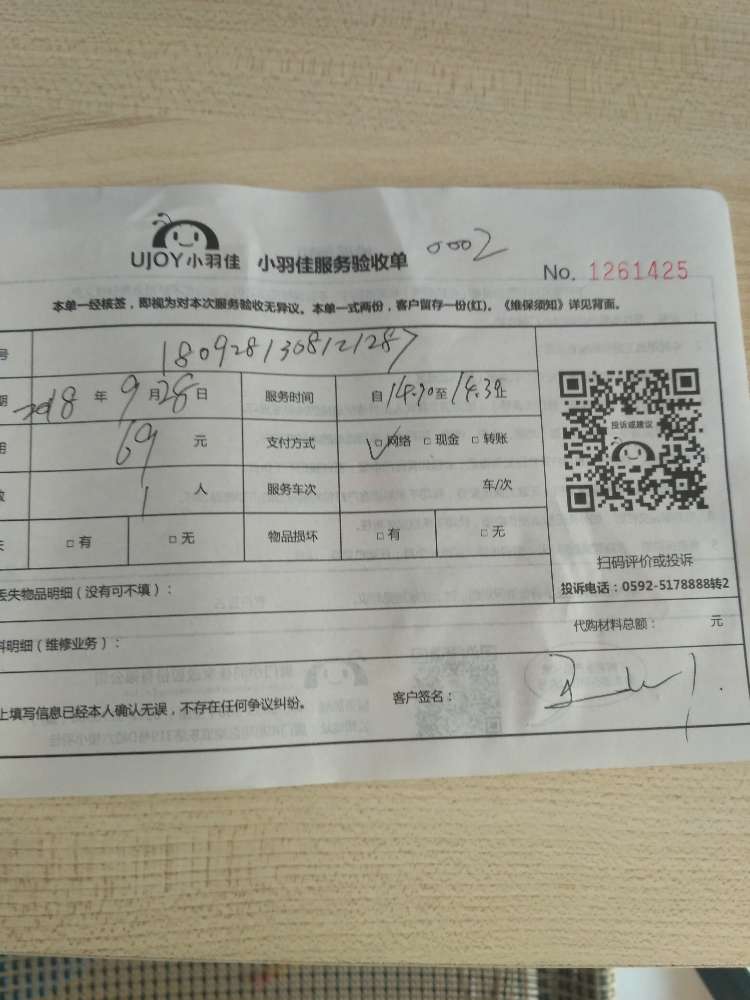 UJOY小羽佳 小羽佳服务验收单 0002
No. 1261425
本单一经核签，即视为对本次服务验收无异议。本单一式两份，客户留存一份(红)。《维保须知》详见背面。
号 1809281308121287
期 2018 年 9 月 28 日 服务时间 自 14.00 至 14.30 止
用 69 元 支付方式 □ 网络 □ 现金 □ 转账
数 1 人 服务车次 车/次
失 □ 有 □ 无 物品损坏 □ 有 □ 无
投诉或建议
扫码评价或投诉
投诉电话：0592-5178888转2
丢失物品明细（没有可不填）：
料明细（维修业务）： 代购材料总额： 元
上填写信息已经本人确认无误，不存在任何争议纠纷。 客户签名：